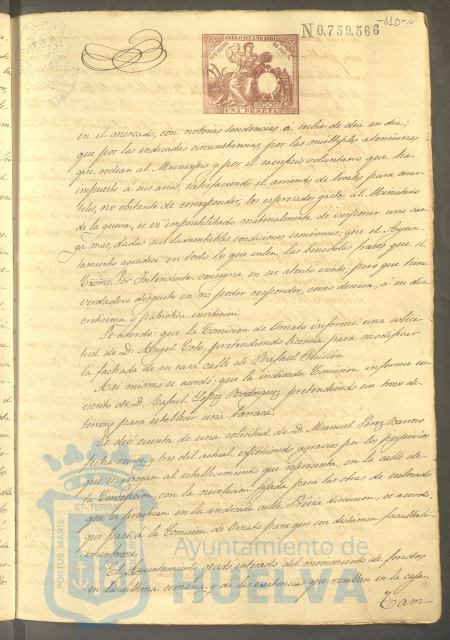 -110-
N 0.759.566
SELLO 10º AÑO 1881
UNA PESETA
en el mercado, con notorias tendencias, a subir de dia en dia;
que por las indicadas circunstancias, por las multiples atenciones
que rodean al Municipio y por el sacrificio voluntario que ha
impuesto a sus arcas, satisfaciendo el arriendo de locales para cuar-
teles, no obstante de corresponder, los espresados gastos, al Ministerio
de la guerra, se vé imposibilitado materialmente de imponer una car-
ga mas, dadas sus lamentables condiciones económicas; que el Ayun-
tamiento agradece en todo lo que valen, las benévolas frases que el
Excmo. Sor. Intendente consigna en su atento escrito, pero que tiene
verdadero disgusto en no poder responder, como deseara, á su dis-
cretisima y patriótica invitacion.
Se acordó: que la Comision de Ornato informe una solici-
tud de D. Angel Toto, pretendiendo licencia para modificar
la fachada de su casa calle de Rafael
Asi mismo se acordó: que la indicada Comision informe
de D. Rafael Lopez Rodriguez, pretendiendo un trozo de
terreno para establecer una barraca.
Se dió cuenta de una solicitud de D. Manuel Perez Barroso
fecha veinte y tres del actual, exponiendo agravios por los perjuicios
que se irrogan al establecimiento que representa, en la calle de
la Concepcion, con la nivelacion fijada para las obras de enlosado
que se practican en la indicada calle. Prévia discusion, se acordó:
que pase a la Comision de Ornato para que con dictamen facultati-
vo informe.
El Ayuntamiento quedó enterado del movimiento de fondos
en la última semana, y de las existencias que resultan en la caja.
Tam-
ET TERRÆ
PORTUS MARIS
Ayuntamiento de
HUELVA